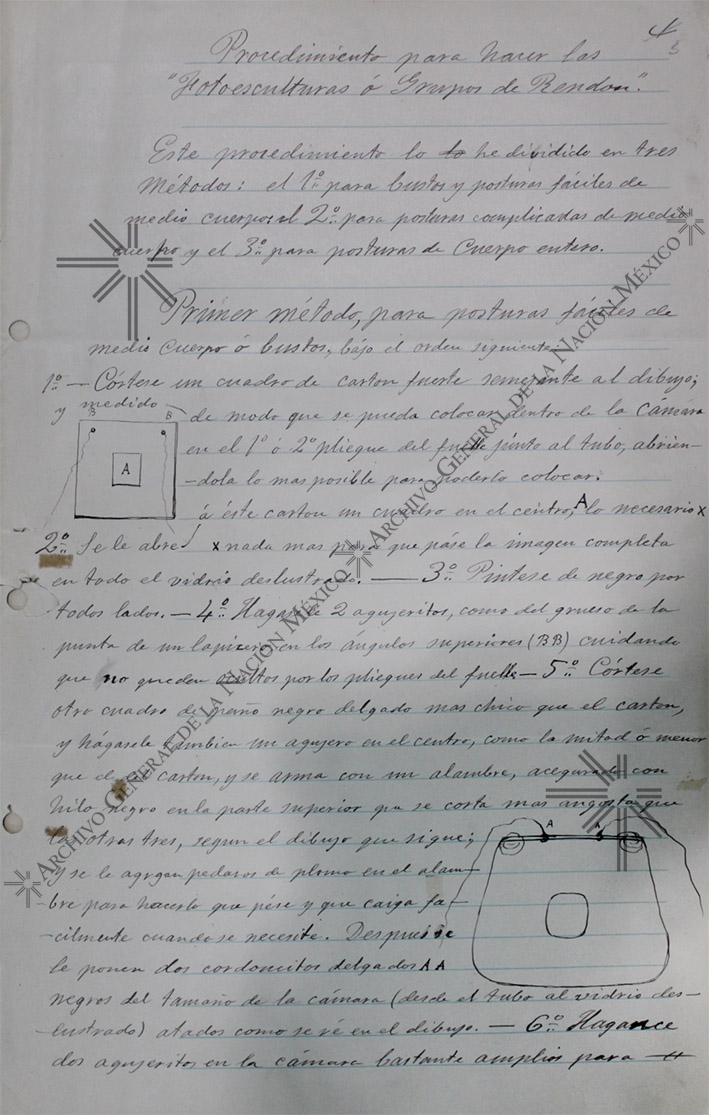 4
3
Procedimiento para hacer las
"Fotoesculturas ó Grupos de Rendon".
Este procedimiento lo lo he dividido en tres
Métodos: el 1º para bustos y posturas fáciles de
medio cuerpo; el 2º para posturas complicadas de medio
cuerpo y el 3º para posturas de Cuerpo entero.
Primer método, para posturas fáciles de
medio Cuerpo ó bustos, bájo el orden siguiente:
1º — Córtese un cuadro de carton fuerte semejante al dibujo;
y medido de modo que se pueda colocar dentro de la cámara
B B
A
en el 1º ó 2º pliegue del fuelle junto al tubo, abrien-
-dola lo mas posible para poderlo colocar.
á éste carton un cuadro en el centro, A lo necesario x
2º Se le abre x nada mas para que páse la imagen completa
en todo el vidrio deslustrado. — 3º Píntese de negro por
todos lados. — 4º Hagasele 2 agujeritos, como del grueso de la
punta de un lapizero en los ángulos superiores (BB) cuidando
que no queden ocultos por los pliegues del fuelle — 5º Córtese
otro cuadro de paño negro delgado mas chico que el carton,
y hágasele tambien un agujero en el centro, como la mitad ó menor
que el del carton, y se arma con un alambre, acegurado con
hilo negro en la parte superior que se corta mas angosta que
las otras tres, segun el dibujo que sigue;
A A
y se le agregan pedazos de plomo en el alam-
bre para hacerlo que pése y que caiga fa-
-cilmente cuando se necesite. Despues se
le ponen dos cordoncitos delgados AA
negros del tamaño de la cámara (desde el tubo al vidrio des-
-lustrado) atados como se vé en el dibujo. — 6º Hagance
dos agujeritos en la cámara bastante amplios para —
ARCHIVO GENERAL DE LA NACIÓN MÉXICO
ARCHIVO GENERAL DE LA NACIÓN MÉXICO